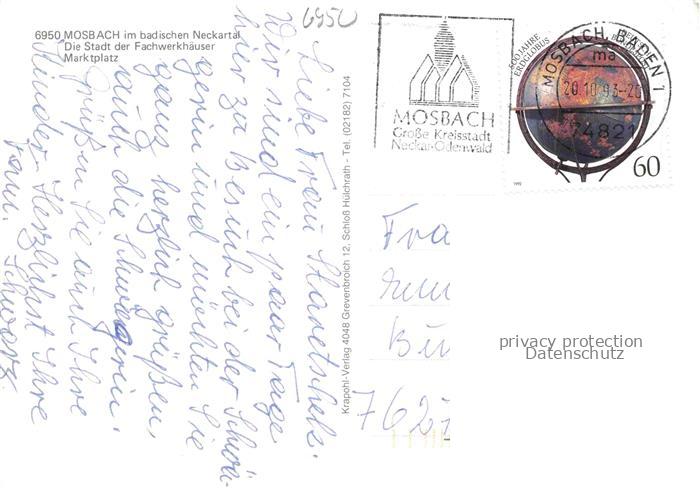 6950
6950 MOSBACH im badischen Neckartal
Die Stadt der Fachwerkhäuser
Marktplatz
Liebe Frau
Wir sind ein paar Tage
hier zu Besuch bei der Schwä-
gerin und möchten Sie
ganz herzlich grüßen,
auch die Schwägerin.
Grüßen Sie auch Ihre
Kinder. Herzlichst Ihre
Fam. Schwarz
Krapohl-Verlag 4048 Grevenbroich 12, Schloß Hülchrath - Tel. (02182) 7104
MOSBACH
Große Kreisstadt
Neckar-Odenwald
500 JAHRE
ERDGLOBUS
MOSBACH, BADEN 1
ma
20.10.93-20
74821
60
1992
Fra
762
privacy protection
Datenschutz